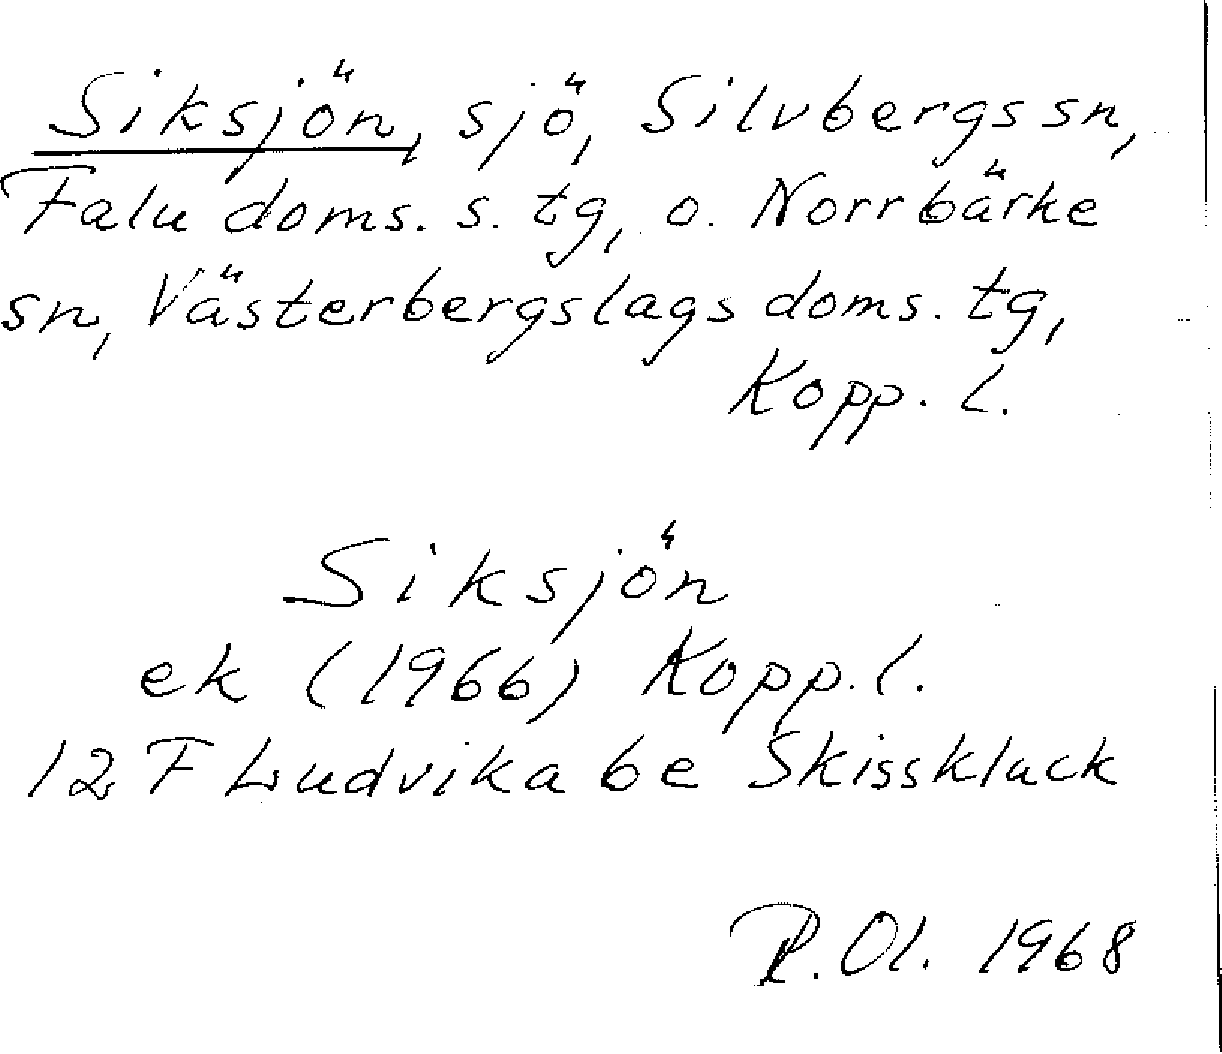 Siksjön, sjö, Silvbergs sn,
Falu doms. s. tg, o. Norrbärke
sn, Västerbergslags doms. tg,
Kopp. l.
Siksjön
ek (1966) Kopp. l.
12 F Ludvika be Skissklack
P. Ol. 1968